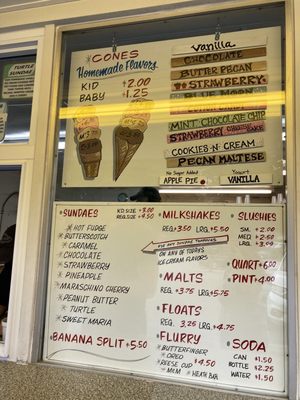 TURTLE
SUNDAE
*CONES
Homemade Flavors
KID *2.00
BABY *1.25
Vanilla
CHOCOLATE
BUTTER PECAN
*RASPBERRY*
BLUE MOON
MINT CHOCOLATE CHIP
STRAWBERRY CHEESECAKE
COOKIES-N-CREAM
PECAN MALTESE
No Sugar Added
APPLE PIE
Yogurt
VANILLA
*SUNDAES
KID SIZE *3.00
REG. SIZE *4.50
*HOT FUDGE
*BUTTERSCOTCH
*CARAMEL
*CHOCOLATE
*STRAWBERRY
*PINEAPPLE
MARASCHINO CHERRY
*PEANUT BUTTER
*TURTLE
*SWEET MARIA
*BANANA SPLIT *5.50
FOR ANY SUNDAE TOPPINGS
ON ANY OF TODAY'S
ICE CREAM FLAVORS
*MILKSHAKES
REG. *3.50 LRG. *5.50
*MALTS
REG. *3.75 LRG. *5.75
*FLOATS
REG. 3.25 LRG. *4.75
*FLURRY
*BUTTERFINGER
*OREO
*REESE CUP *4.50
*M&M *HEATH BAR
*SLUSHIES
SM. *2.00
MED. *2.50
LRG. *3.00
QUART *6.00
PINT *4.00
*SODA
CAN *1.50
BOTTLE *2.25
WATER *1.50